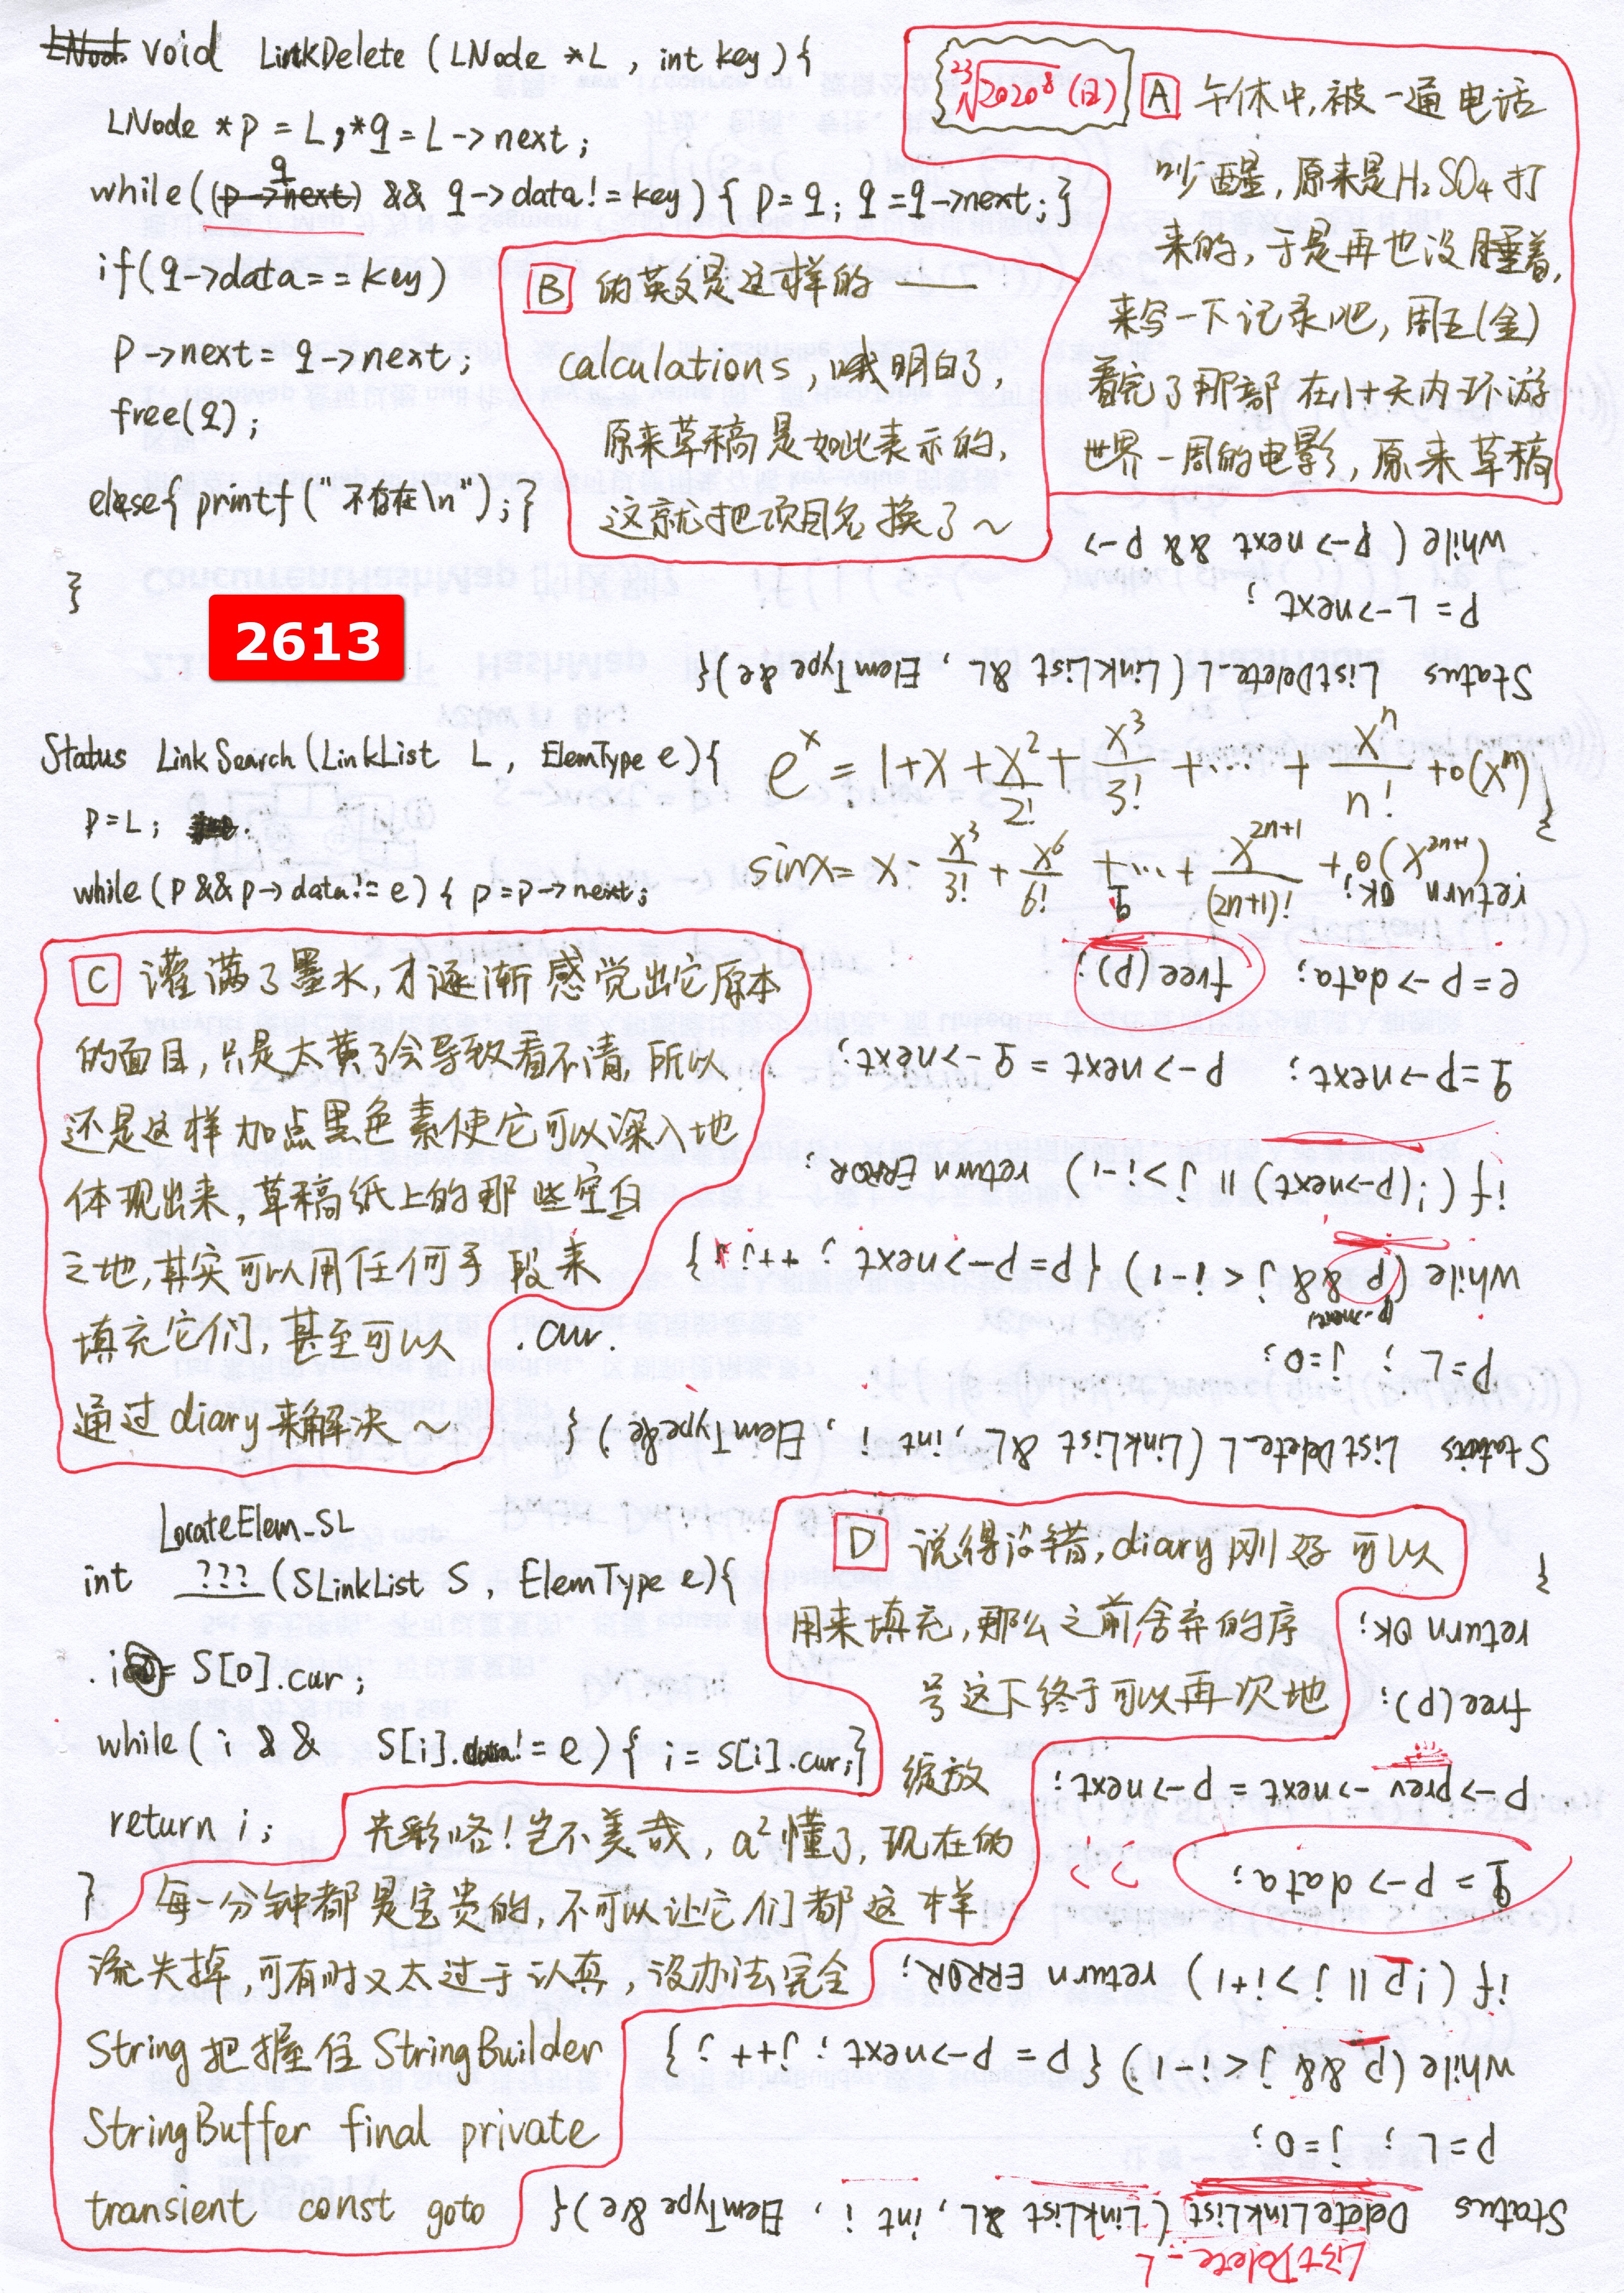 void LinkDelete (LNode *L , int key) {
LNode *p = L, *q = L->next ;
q
while( (p->next) && q->data != key) { p = q; q = q->next; }
if(q->data == key)
p->next = q->next ;
free(q) ;
else { printf ("不存在\n"); }
}
2613
²³√2020⁸ (日) A 午休中,被一通电话
吵醒,原来是H₂SO₄打
来的,于是再也没睡着,
来写一下记录吧,周五(金)
看完了那部在八十天内环游
世界一周的电影,原来草稿
B 的英文是这样的——
calculations,哦明白了,
原来草稿是如此表示的,
这就把项目名换了~
Status LinkSearch (LinkList L , ElemType e) {
p = L ;
while (p && p->data != e) { p = p->next ;
eˣ = 1 + x + x²/2! + x³/3! + ⋯⋯ + xⁿ/n! + o(xⁿ)
sinx = x - x³/3! + x⁶/6! + ⋯ + x²ⁿ⁺¹/(2n+1)! + o(x²ⁿ⁺¹)
C 灌满了墨水,才逐渐感觉出它原本
的面目,只是太黄了会导致看不清,所以
还是这样加点黑色素使它可以深入地
体现出来,草稿纸上的那些空白
之地,其实可以用任何手段来
填充它们,甚至可以
通过diary来解决~
.cur.
LocateElem_SL
int ??? (SLinkList S , ElemType e) {
i = S[0].cur ;
while ( i && S[i].data != e) { i = S[i].cur; }
return i ;
}
D 说得没错,diary刚好可以
用来填充,那么之前舍弃的序
号这下终于可以再次地
绽放
光彩咯!岂不美哉,a²懂了,现在的
每一分钟都是宝贵的,不可以让它们都这样
流失掉,可有时又太过于认真,没办法完全
String 把握住 StringBuilder
StringBuffer final private
transient const goto
ListDelete_L
Status DeleteLinkList (LinkList &L , int i , ElemType &e) {
p = L ; j = 0 ;
while (p && j < i-1) { p = p->next ; j++ ; }
if ( !p || j > i+1) return ERROR ;
q = p->data ; ??
p->prev->next = p->next ;
free(p) ;
return OK ;
}
Status ListDelete_L (LinkList &L , int i , ElemType &e) {
p = L ; j = 0 ;
p->next
while (p && j < i-1) { p = p->next ; ++j ; }
if ( !(p->next) || j > i-1) return ERROR ;
q = p->next ; p->next = q->next ;
e = p->data ; free(p) ;
q
return OK ;
}
Status ListDelete_L (LinkList &L , ElemType &e) {
p = L->next ;
while ( p->next && p->